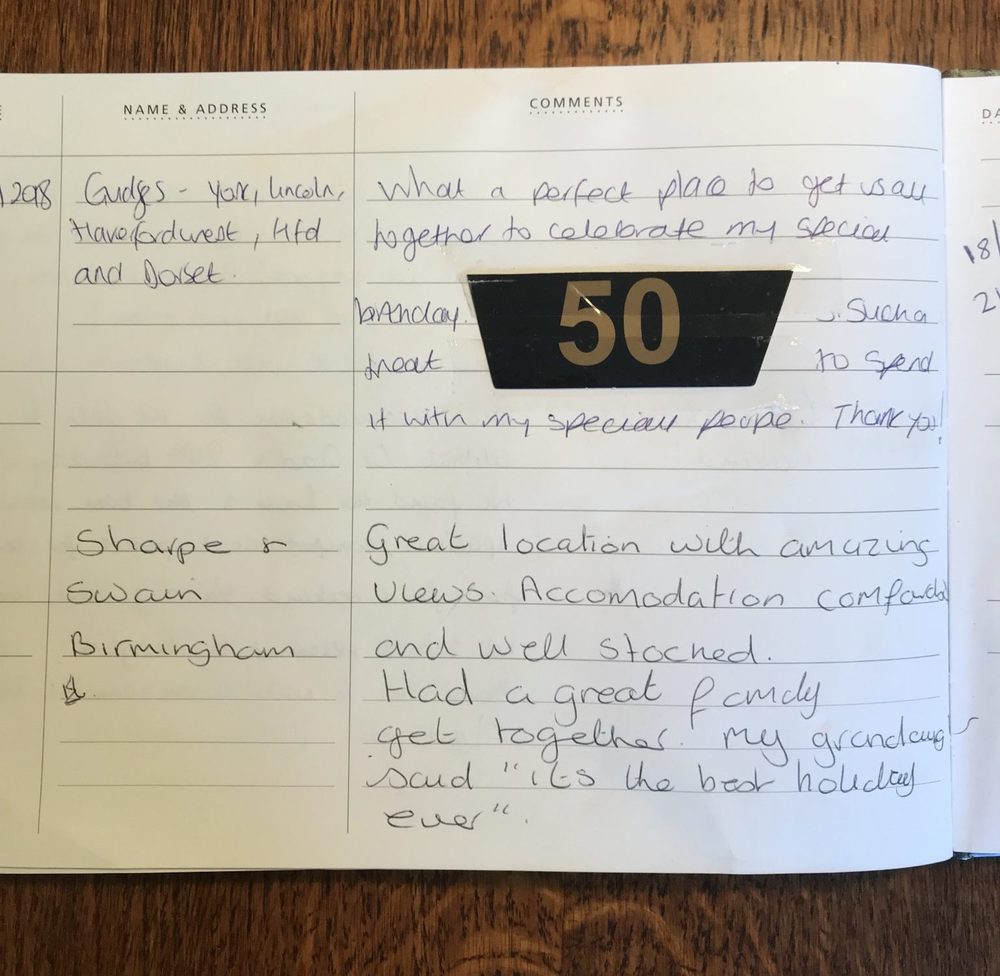 NAME & ADDRESS
COMMENTS
Gudges - York, Lincoln,
Haverfordwest, Hfd
and Dorset.
What a perfect place to get us all
together to celebrate my special
birthday. 50 Such a
treat to spend
it with my special people. Thank you!
Sharpe &
Swain
Birmingham
Great location with amazing
views. Accomodation
and well stocked.
Had a great family
get together. My
said "its the best holiday
ever".
DA
18/